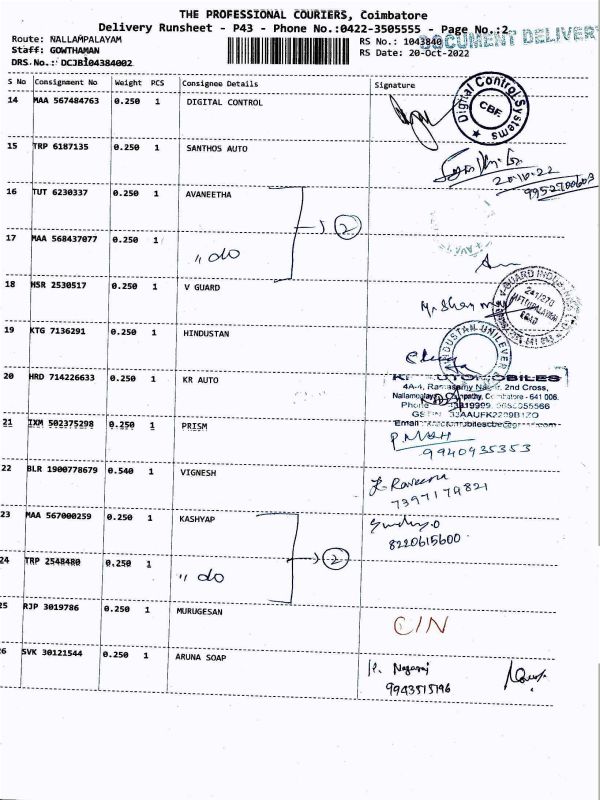 THE PROFESSIONAL COURIERS, Coimbatore
Delivery Runsheet - P43 - Phone No.:0422-3505555 - Page No.:2
DOCUMENT DELIVERY
Route: NALLAMPALAYAM
RS No.: 1043840
Staff: GOWTHAMAN
RS Date: 20-Oct-2022
DRS.No.: DCJB104384002
S No Consignment No Weight PCS Consignee Details Signature
14 MAA 567484763 0.250 1 DIGITAL CONTROL
Digital Control Systems CBE
15 TRP 6187135 0.250 1 SANTHOS AUTO
20.10.22
9952700603
16 TUT 6230337 0.250 1 AVANEETHA
2
17 MAA 568437077 0.250 1 " do
18 HSR 2530517 0.250 1 V GUARD
19 KTG 7136291 0.250 1 HINDUSTAN
HINDUSTAN UNILEVER
20 HRD 714226633 0.250 1 KR AUTO
2nd Cross,
Coimbatore - 641 006.
21 IXM 502375298 0.250 1 PRISM
9940935353
22 BLR 1900778679 0.540 1 VIGNESH
R. Raveena
7397179821
23 MAA 567000259 0.250 1 KASHYAP
8220615600
2
24 TRP 2548480 0.250 1 " do
25 RJP 3019786 0.250 1 MURUGESAN
C/N
26 SVK 30121544 0.250 1 ARUNA SOAP
Nagaraj
9943515196